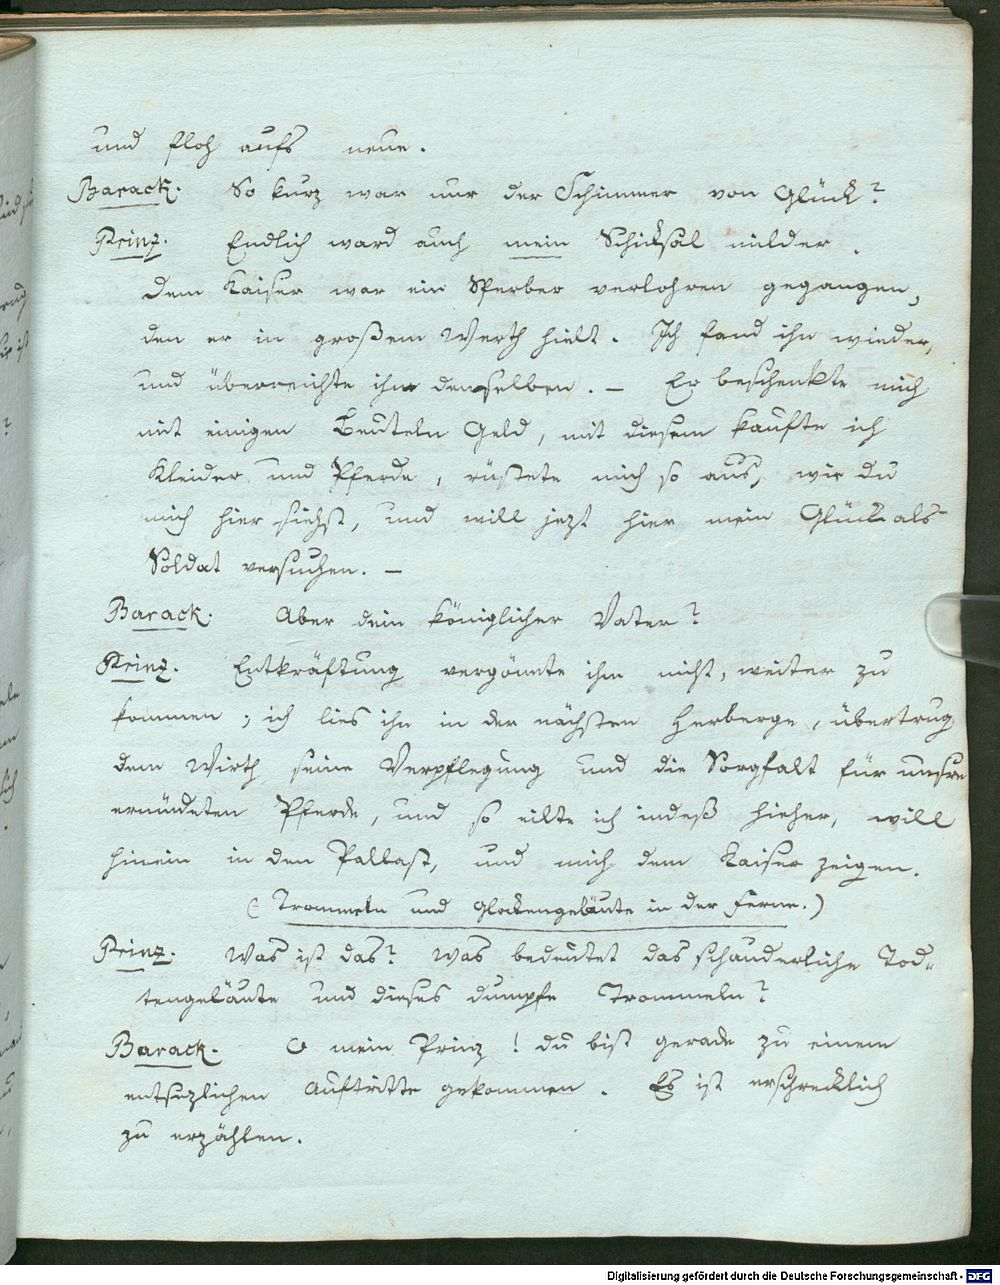 und floh aufs neue.
Barack. So kurz war nur der Schimmer von Glück?
Prinz. Endlich ward auch mein Schicksal milder.
Dem Kaiser war ein Sperber verlohren gegangen,
den er in großem Werth hielt. Ich fand ihn wieder,
und überreichte ihm denselben. — Er beschenkte mich
mit einigen Beuteln Geld, mit diesem kaufte ich
Kleider und Pferde, rüstete mich so aus, wie du
mich hier siehst, und will jezt hier mein Glück als
Soldat versuchen. —
Barack. Aber dein königlicher Vater?
Prinz. Entkräftung vergönnte ihm nicht, weiter zu
kommen; ich lies ihn in der nächsten Herberge, übertrug
dem Wirth seine Verpflegung und die Sorgfalt für unsre
ermüdeten Pferde, und so eilte ich indeß hieher, will
hinein in den Pallast, und mich dem Kaiser zeigen.
(Trommeln und Glockengeläute in der Ferne.)
Prinz. Was ist das? Was bedeutet das schauderliche Tod„
tengeläute und dieses dumpfe Trommeln?
Barack. O mein Prinz! du bist gerade zu einem
entsezlichen Auftritte gekommen. Es ist erschrecklich
zu erzählen.
Digitalisierung gefördert durch die Deutsche Forschungsgemeinschaft - DFG